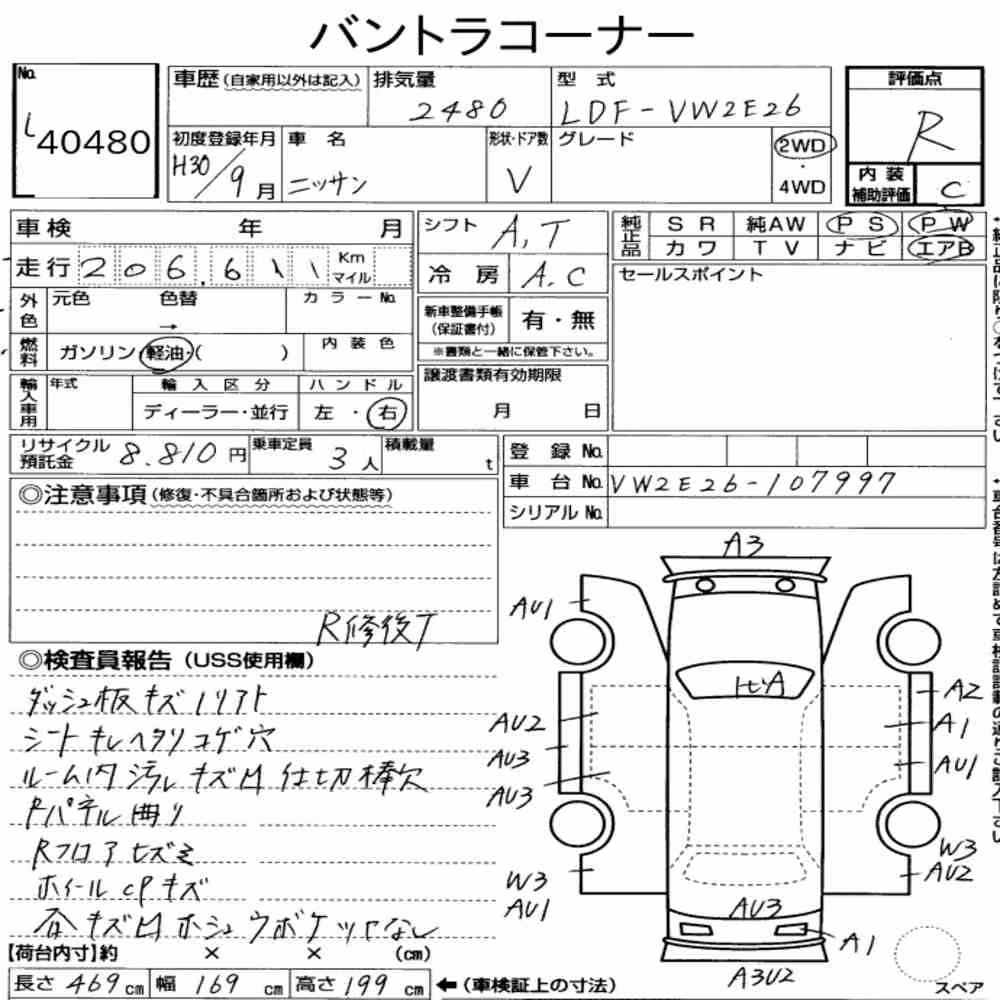 バントラコーナー
No.
L 40480
車歴(自家用以外は記入)
排気量
2480
型 式
LDF-VW2E26
評価点
R
初度登録年月
H30/9月
車 名
ニッサン
形状・ドア数
V
グレード
2WD
・
4WD
内 装
補助評価
C
車検 年 月
シフト A,T
純正品
S R 純AW P S P W
カワ T V ナビ エアB
走行 206,611 Km マイル
冷 房 A.C
セールスポイント
外色 元色 色替 →
カラーNo.
新車整備手帳
(保証書付)
有・無
※書類と一緒に保管下さい。
燃料 ガソリン・軽油・( )
内 装 色
譲渡書類有効期限
月 日
輸入車用 年式
輸 入 区 分
ディーラー・並行
ハ ン ド ル
左・右
リサイクル
預託金
8.810円
乗車定員
3人
積載量
t
登 録 No.
車 台 No. VW2E26-107997
シリアル No.
◎注意事項(修復・不具合箇所および状態等)
R修後T
◎検査員報告(USS使用欄)
ダッシュ板キズ1リフト
シートキレヘタリコゲ穴
ルーム内汚レキズM仕切棒欠
Rパネル曲り
Rフロアヒズミ
ホイールCPキズ
各キズMホシュウポケットなし
【荷台内寸】約 × × (cm)
長さ 469cm 幅 169cm 高さ 199cm ←(車検証上の寸法)
A3
AU1
ヒビA
A2
AU2
A1
AU3
AU1
AU3
W3
W3
AU2
AU1
AU3
A1
A3U2
スペア